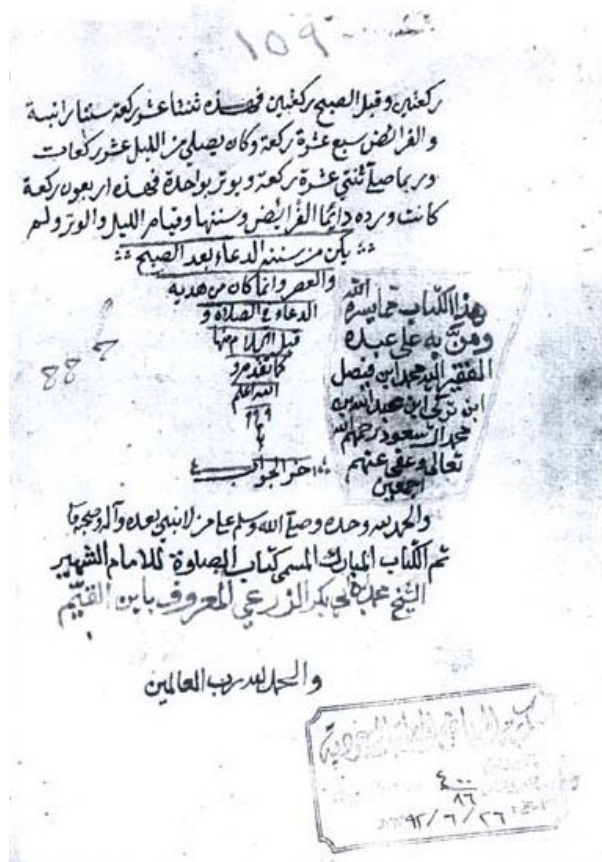 ١٥٩
ركعتين وقبل الصبح ركعتين فهذه ثنتا عشر ركعة سننا راتبة
والفرائض سبع عشرة ركعة وكان يصلي من الليل عشر ركعات
وربما صلى ثنتي عشرة ركعة ويوتر بواحدة فهذه اربعون ركعة
كانت ورده دائما الفرائض وسننها وقيام الليل والوتر ولم
يكن من سننه الدعاء بعد الصبح
والعصر وانما كان من هديه
الدعاء في الصلاة و
قبل السلام منها
كما تقدم و
الله اعلم
اخر الجواب
هذا الكتاب مما يسره الله
ومن به على عبده
الفقير اليه محمد ابن فيصل
ابن تركي ابن عبد الله بن
محمد ال سعود رحمهم الله
تعالى وعفى عنهم
اجمعين
88
والحمد لله وحده وصلى الله وسلم على من لا نبي بعده وآله وصحبه
تم الكتاب المبارك المسمى كتاب الصلوة للامام الشهير
الشيخ محمد بن ابي بكر الزرعي المعروف بابن القيم
والحمد لله رب العالمين
السعودية
٨٦
٩٢/٦/٢٦